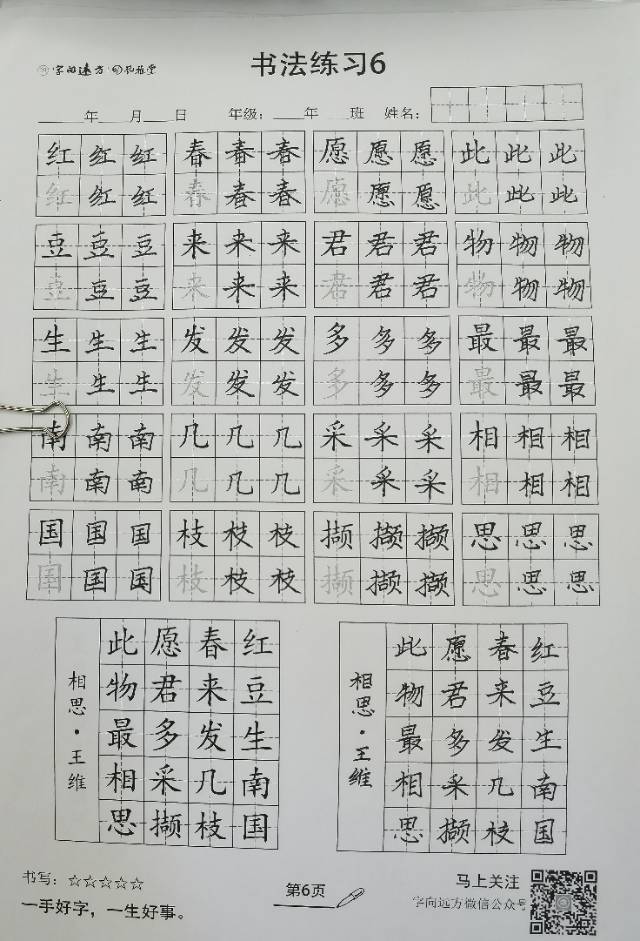 字向远方
书法练习6
年 月 日 年级: 年 班 姓名:
红红红 春春春 愿愿愿 此此此
红红红 春春春 愿愿愿 此此此
豆豆豆 来来来 君君君 物物物
豆豆豆 来来来 君君君 物物物
生生生 发发发 多多多 最最最
生生生 发发发 多多多 最最最
南南南 几几几 采采采 相相相
南南南 几几几 采采采 相相相
国国国 枝枝枝 撷撷撷 思思思
国国国 枝枝枝 撷撷撷 思思思
红豆生南国
春来发几枝
愿君多采撷
此物最相思
相思·王维
红豆生南国
春来发几枝
愿君多采撷
此物最相思
相思·王维
书写:☆☆☆☆☆
一手好字,一生好事。
第6页
马上关注
字向远方微信公众号